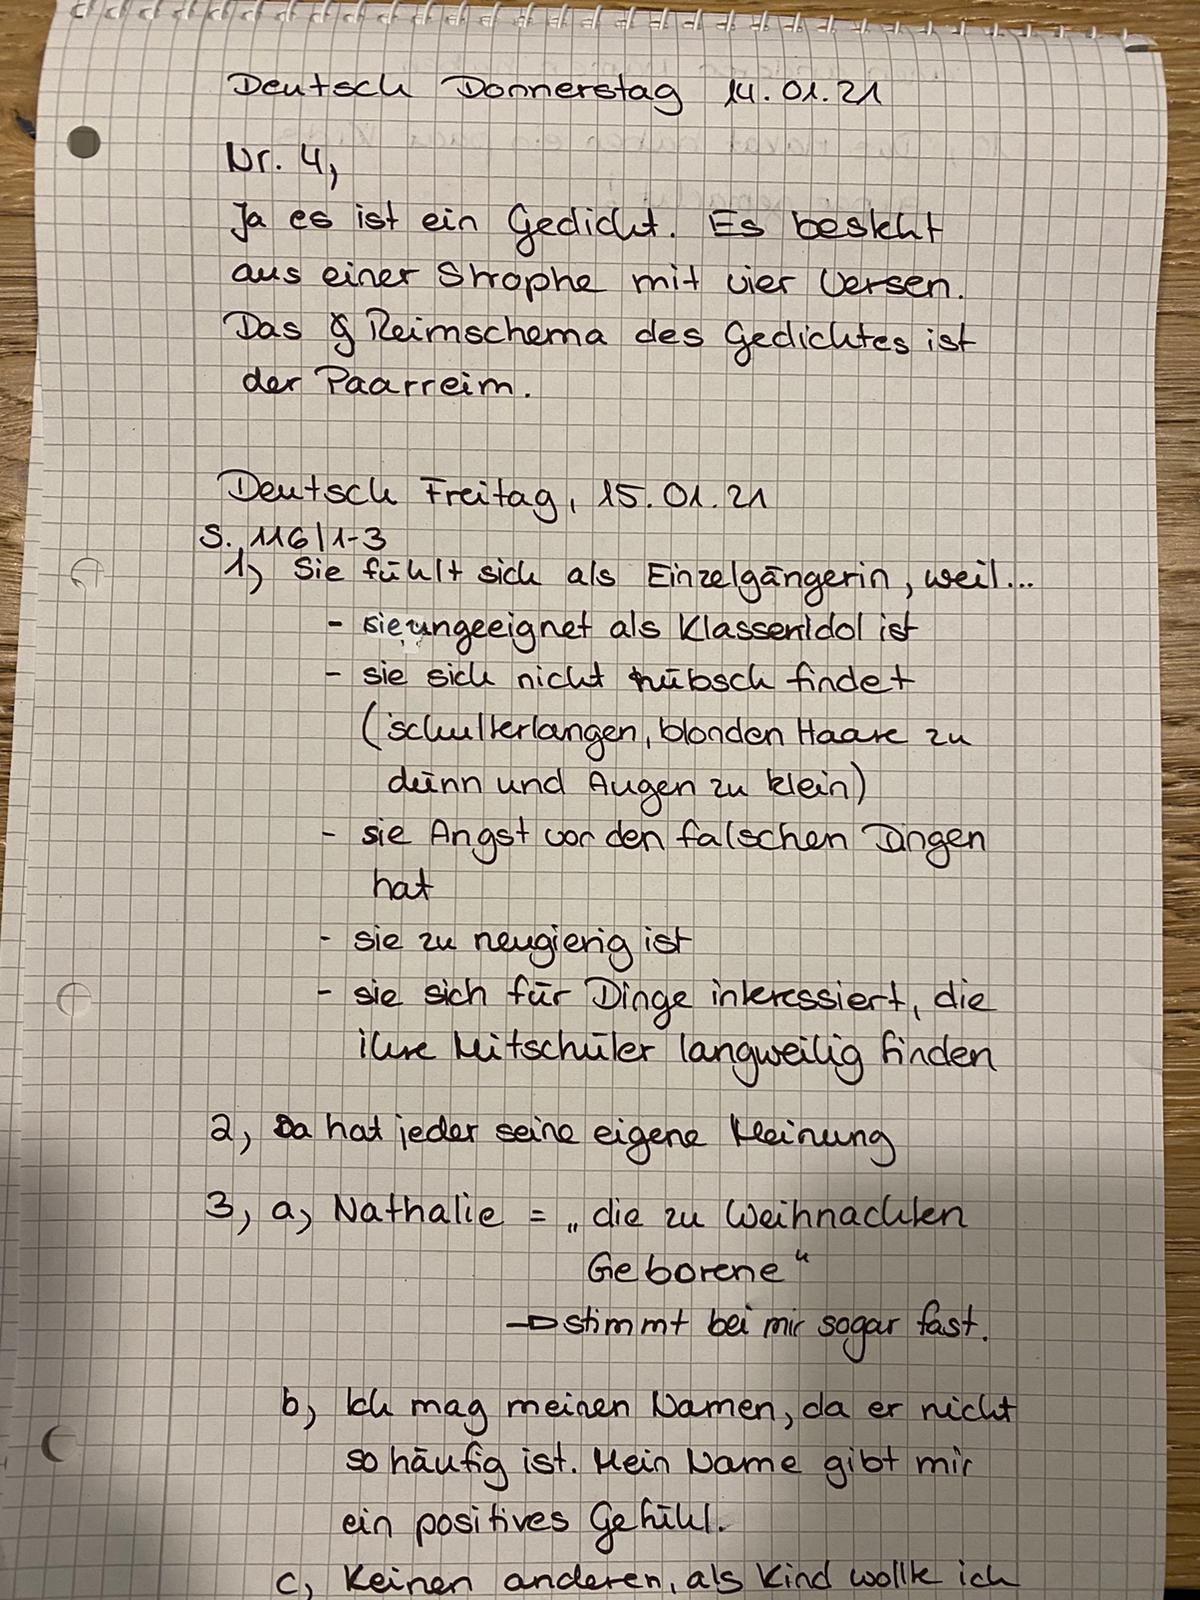 Deutsch Donnerstag 14.01.21
Nr. 4,
Ja es ist ein Gedicht. Es besteht
aus einer Strophe mit vier Versen.
Das Reimschema des Gedichtes ist
der Paarreim.
Deutsch Freitag, 15.01.21
S. 116/1-3
1, Sie fühlt sich als Einzelgängerin, weil...
- sie ungeeignet als Klassenidol ist
- sie sich nicht hübsch findet
(schulterlangen, blonden Haare zu
dünn und Augen zu klein)
- sie Angst vor den falschen Dingen
hat
- sie zu neugierig ist
- sie sich für Dinge interessiert, die
ihre Mitschüler langweilig finden
2, Da hat jeder seine eigene Meinung
3, a, Nathalie = „die zu Weihnachten
Geborene“
→ stimmt bei mir sogar fast.
b, Ich mag meinen Namen, da er nicht
so häufig ist. Mein Name gibt mir
ein positives Gefühl.
c, Keinen anderen, als Kind wollte ich